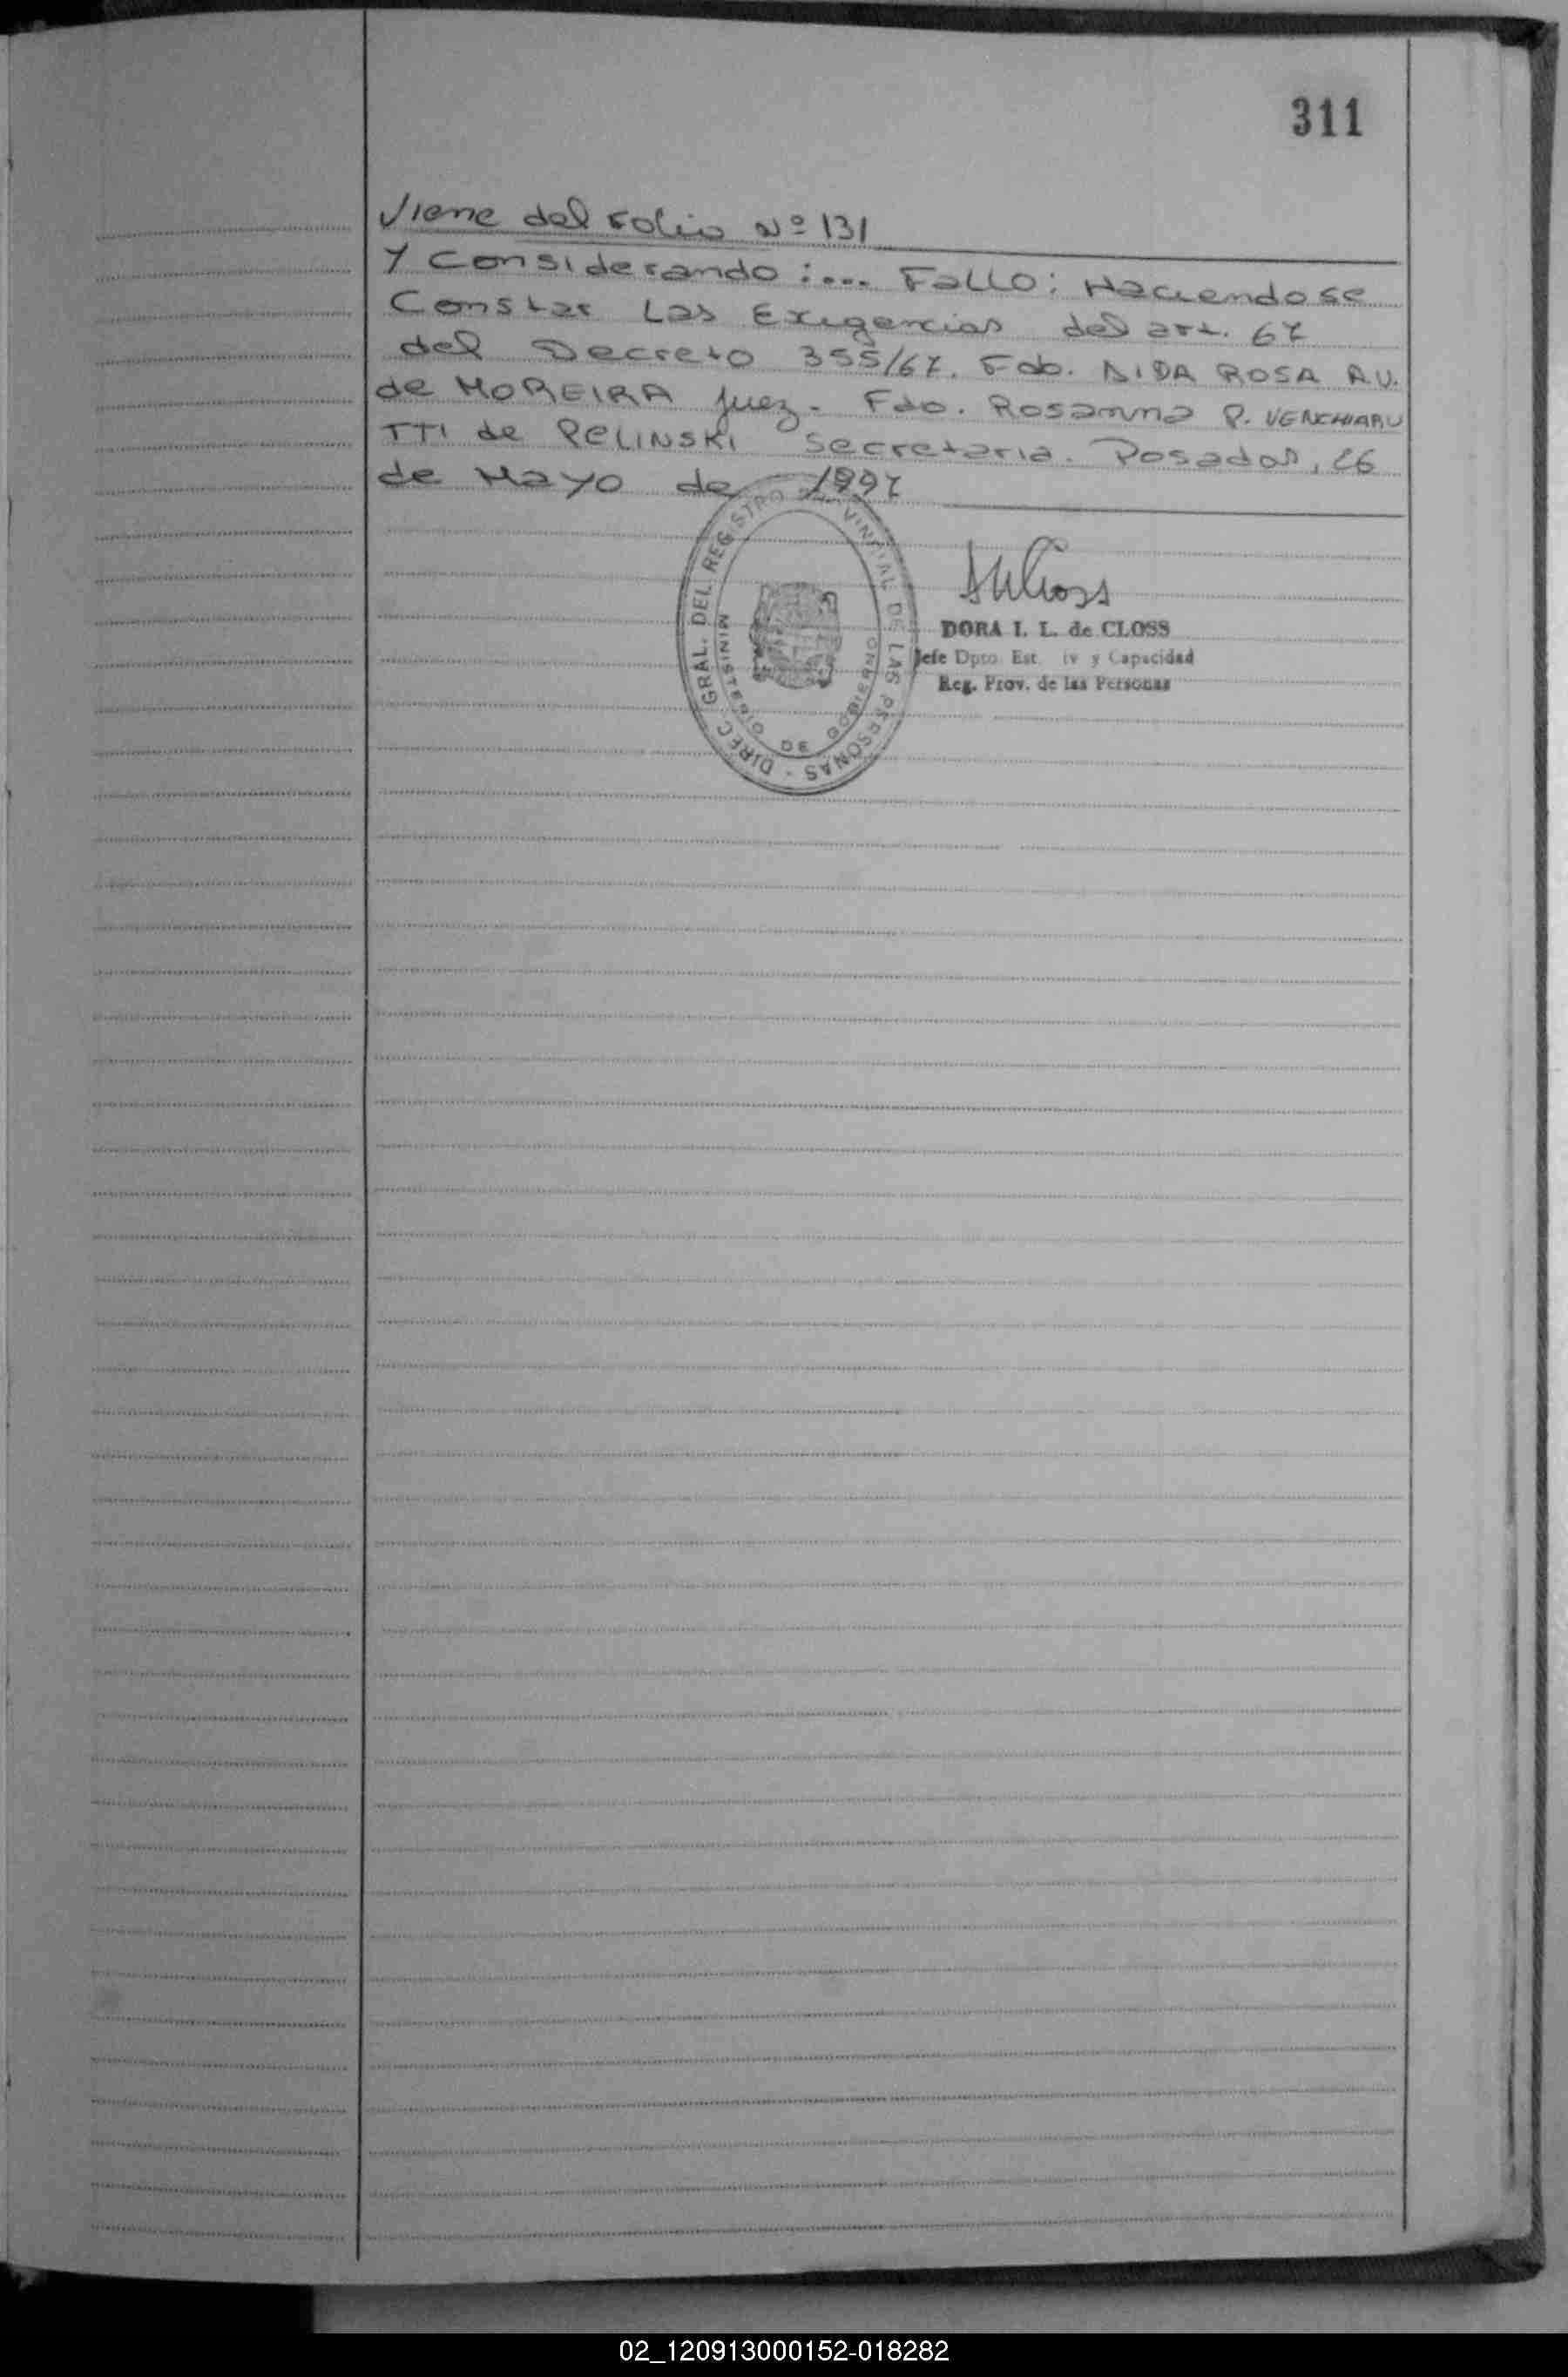 311
Viene del Folio Nº 131
Y Considerando:... Fallo: Haciendose
Constar Las Exigencias del art. 67
del Decreto 355/67. Fdo. NIDA ROSA A.U.
de MOREIRA Juez. Fdo. Rosanna P. VENCHIARU
TTI de PELINSKI Secretaria. Posadas, 26
de Mayo de 1997
DIREC GRAL. DEL REGISTRO VINCIAL DE LAS PERSONAS -
MINISTERIO DE GOBIERNO
DORA I. L. de CLOSS
Jefe Dpto Est iv y Capacidad
Reg. Prov. de las Personas
02_120913000152-018282